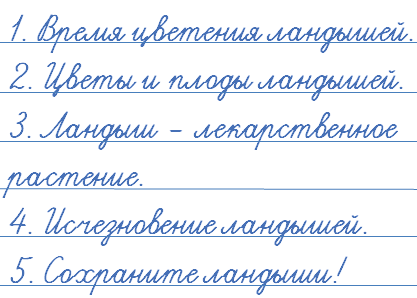 1. Время цветения ландышей.
2. Цветы и плоды ландышей.
3. Ландыш - лекарственное
растение.
4. Исчезновение ландышей.
5. Сохраните ландыши!